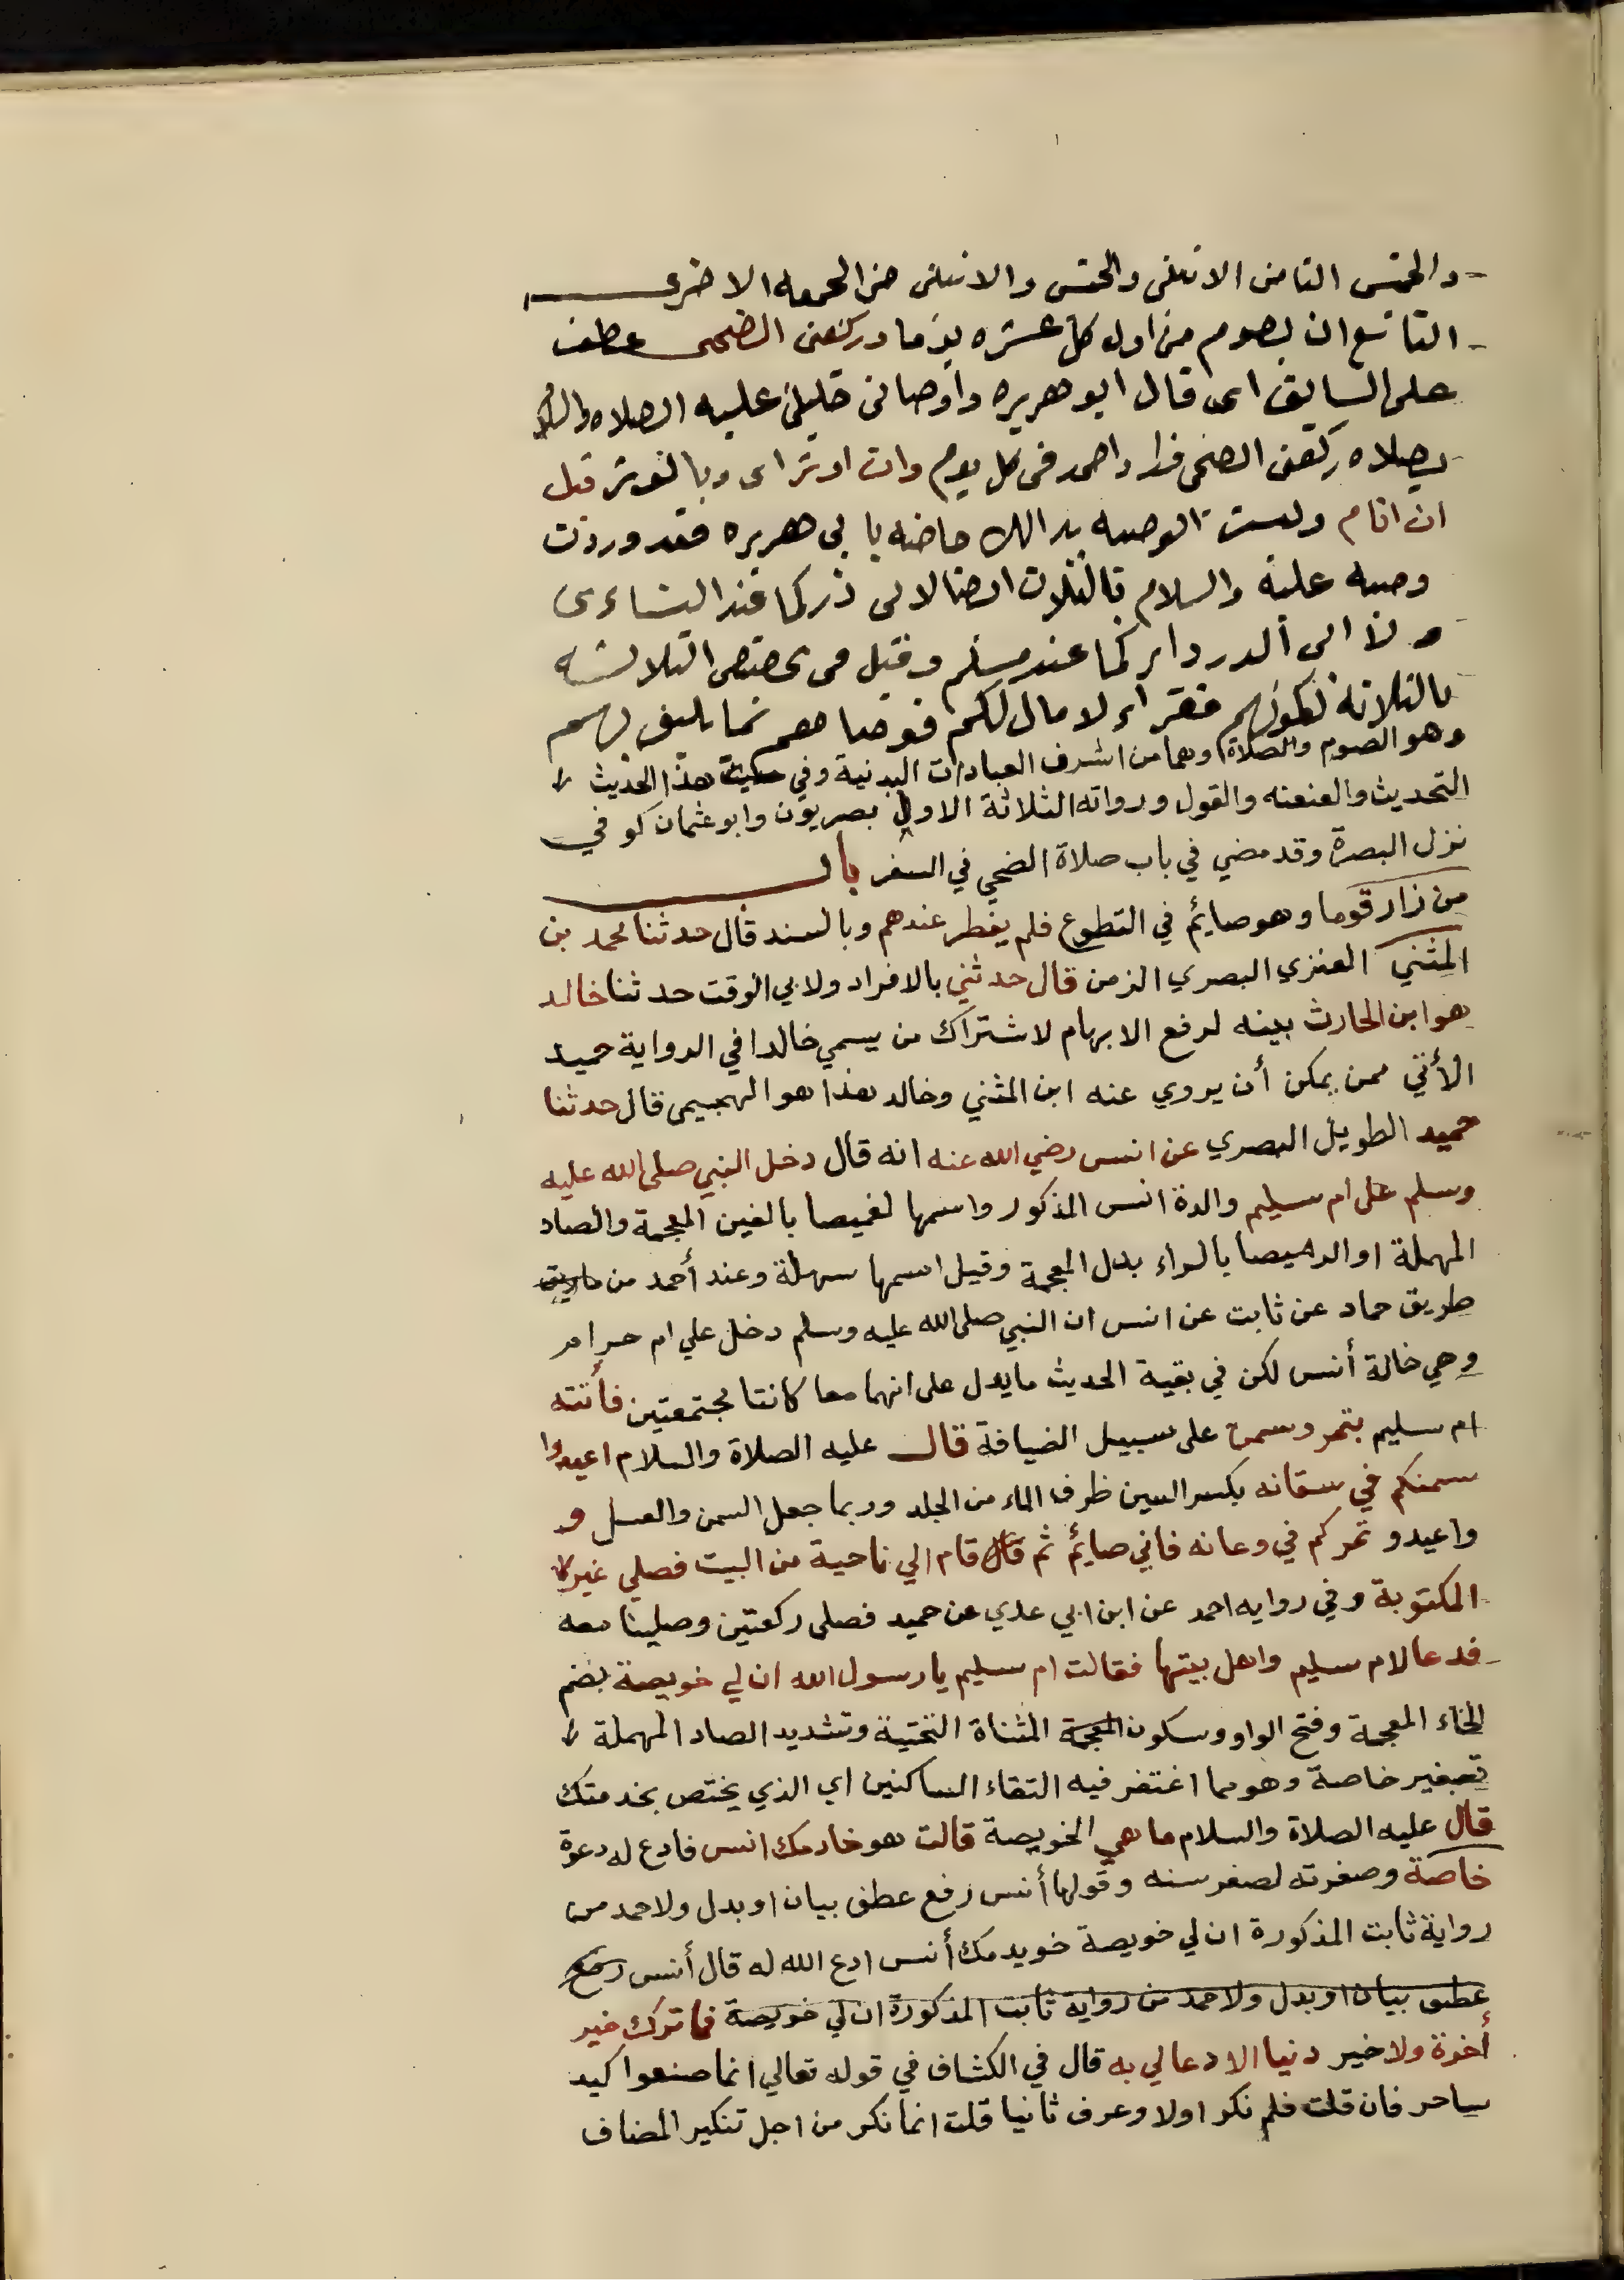 والخميس الثامن الاثنين والخميس والاثنين من الجمعه الاخرى
التاسع ان يصوم من اول كل عشره يوما وركعتى الضحى عطف
على السابق اى قال ابو هريره واوصانى خليلى عليه الصلاه والسلام
بصلاه ركعتى الضحى زاد احمد فى كل يوم وان اوتر اى وبالوتر قبل
ان انام وليست الوصيه بذالك خاصه بابى هريره فقد وردت
وصيه عليه والسلام بالثلاث ايضا لابى ذر كما عند النساءى
و لابى الدرداء كما عند مسلم وقيل فى تخصيص الثلاثه
بالثلاثه لكونهم فقراء لا مال لهم فوصاهم بما يليق بهم
وهو الصوم والصلاة وهما من اشرف العبادات البدنية وفي هذا الحديث
التحديث والعنعنه والقول ورواته الثلاثة الاول بصريون وابو عثمان كوفي
نزل البصرة وقد مضي في باب صلاة الضحي في السفر باب
من زار قوما وهو صائم في التطوع فلم يفطر عندهم وبالسند قال حدثنا محمد بن
المثني العنزي البصري الزمن قال حدثني بالافراد ولابي الوقت حدثنا خالد
هو ابن الحارث بينه لرفع الابهام لاشتراك من يسمي خالدا في الرواية حميد
الأتي ممن يمكن أن يروي عنه ابن المثني وخالد هذا هو الهجيمى قال حدثنا
حميد الطويل البصري عن انس رضي الله عنه انه قال دخل النبي صلى الله عليه
وسلم على ام سليم والدة انس المذكور واسمها لغميصا بالغين المعجمة والصاد
المهملة او الرميصا بالراء بدل المعجمة وقيل اسمها سهلة وعند أحمد من
طريق حماد عن ثابت عن انس ان النبي صلى الله عليه وسلم دخل علي ام حرام
وهي خالة أنس لكن في بقية الحديث ما يدل على انهما معا كانتا مجتمعتين فأتته
ام سليم بتمر وسمن على سبيل الضيافة قال عليه الصلاة والسلام اعيدوا
سمنكم في سقائه بكسر السين ظرف الماء من الجلد وربما جعل السمن والعسل و
واعيدو تمركم في وعائه فاني صائم ثم قال قام الي ناحية من البيت فصلي غير
المكتوبة وفي روايه احمد عن ابن ابي عدي عن حميد فصلى ركعتين وصلينا معه
فدعا لام سليم واهل بيتها فقالت ام سليم يا رسول الله ان لي خويصة بضم
الخاء المعجمة وفتح الواو وسكون المعجمة المثناة التحتية وتشديد الصاد المهملة
تصغير خاصة وهو مما اغتفر فيه التقاء الساكنين اي الذي يختص بخدمتك
قال عليه الصلاة والسلام ما هي الخويصة قالت هو خادمك انس فادع له دعوة
خاصة وصغرته لصغر سنه وقولها أنس رفع عطف بيان او بدل ولاحمد من
رواية ثابت المذكورة ان لي خويصة خويدمك أنس ادع الله له قال أنس رفع
عطف بيان او بدل ولاحمد من رواية ثابت المذكورة ان لي خويصة فما ترك خير
أخرة ولا خير دنيا الا دعا لي به قال في الكشاف في قوله تعالي انما صنعوا كيد
ساحر فان قلت فلم نكر اولا وعرف ثانيا قلت انما نكر من اجل تنكير المضاف